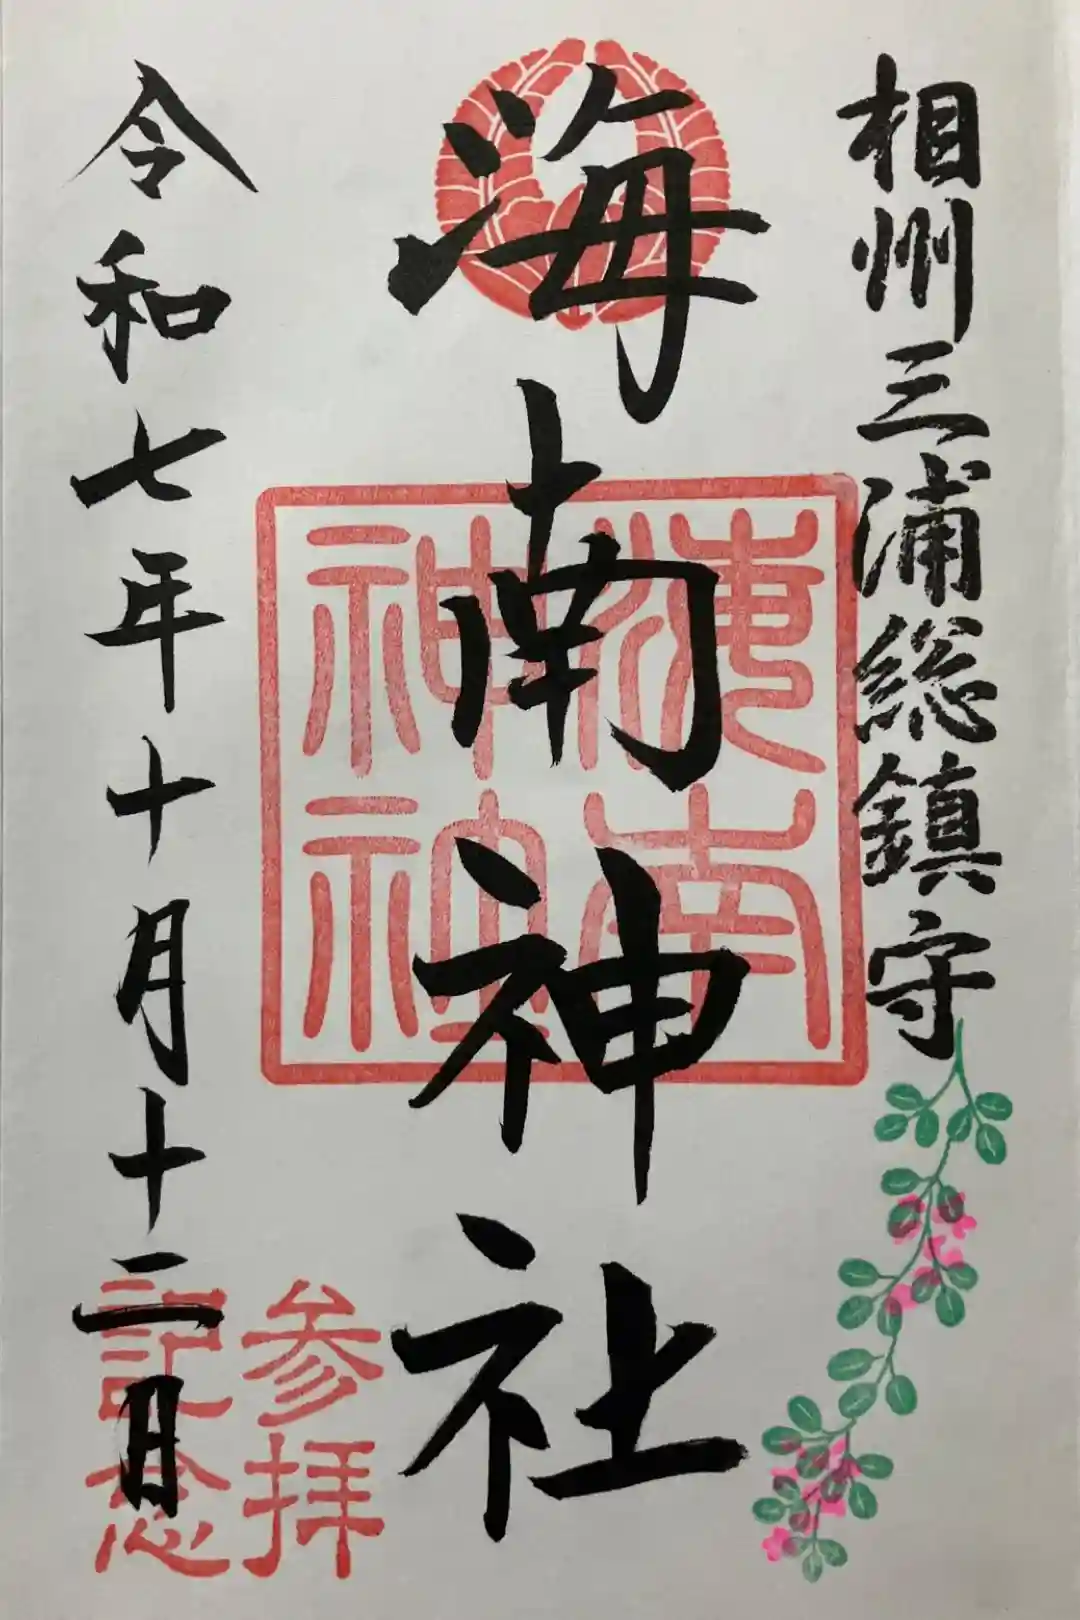 相州三浦総鎮守
海南神社
海南
神社
参拝
記念
令和七年十月十二日